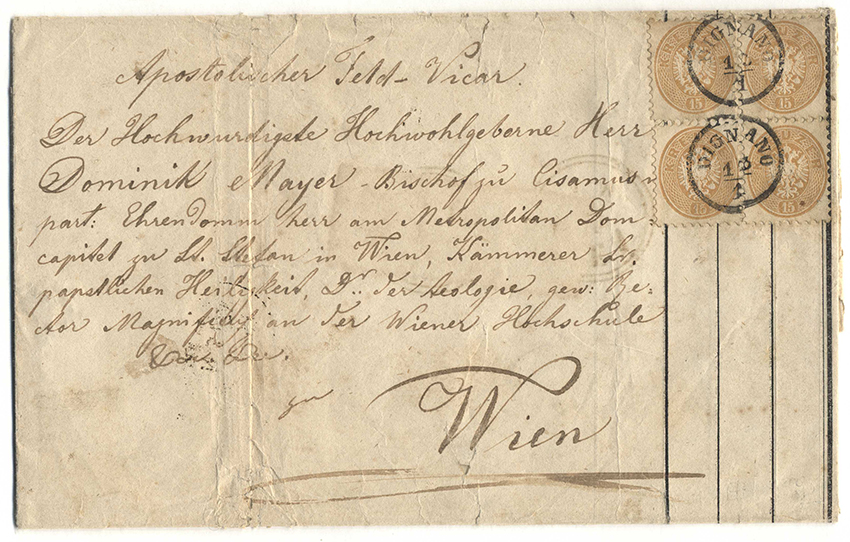 Apostolischer Feld-Vicar.
Der Hochwürdigste Hochwohlgeborne Herr
Dominik Mayer - Bischof zu Cisamus n
part: Ehrendomm herr am Metropolitan Dom-
capitel zu St. Stefan in Wien, Kämmerer Sr.
papstlichen Heiligkeit, Dr. der teologie, gew: Re-
ctor Magnificus an der Wiener Hochschule
&c. &c.
zu
Wien
KREUZER 15
KREUZER 15
DIGNANO
12
1
KREUZER 15
KREUZER 15
DIGNANO
12
1